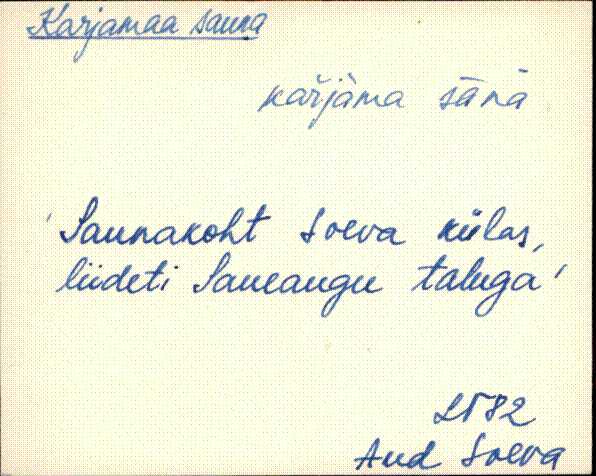 Karjamaa sauna
kar̆jàma sānà
'Saunakoht Soeva külas,
liideti Saueaugu taluga'
LN 82
Aud Soeva